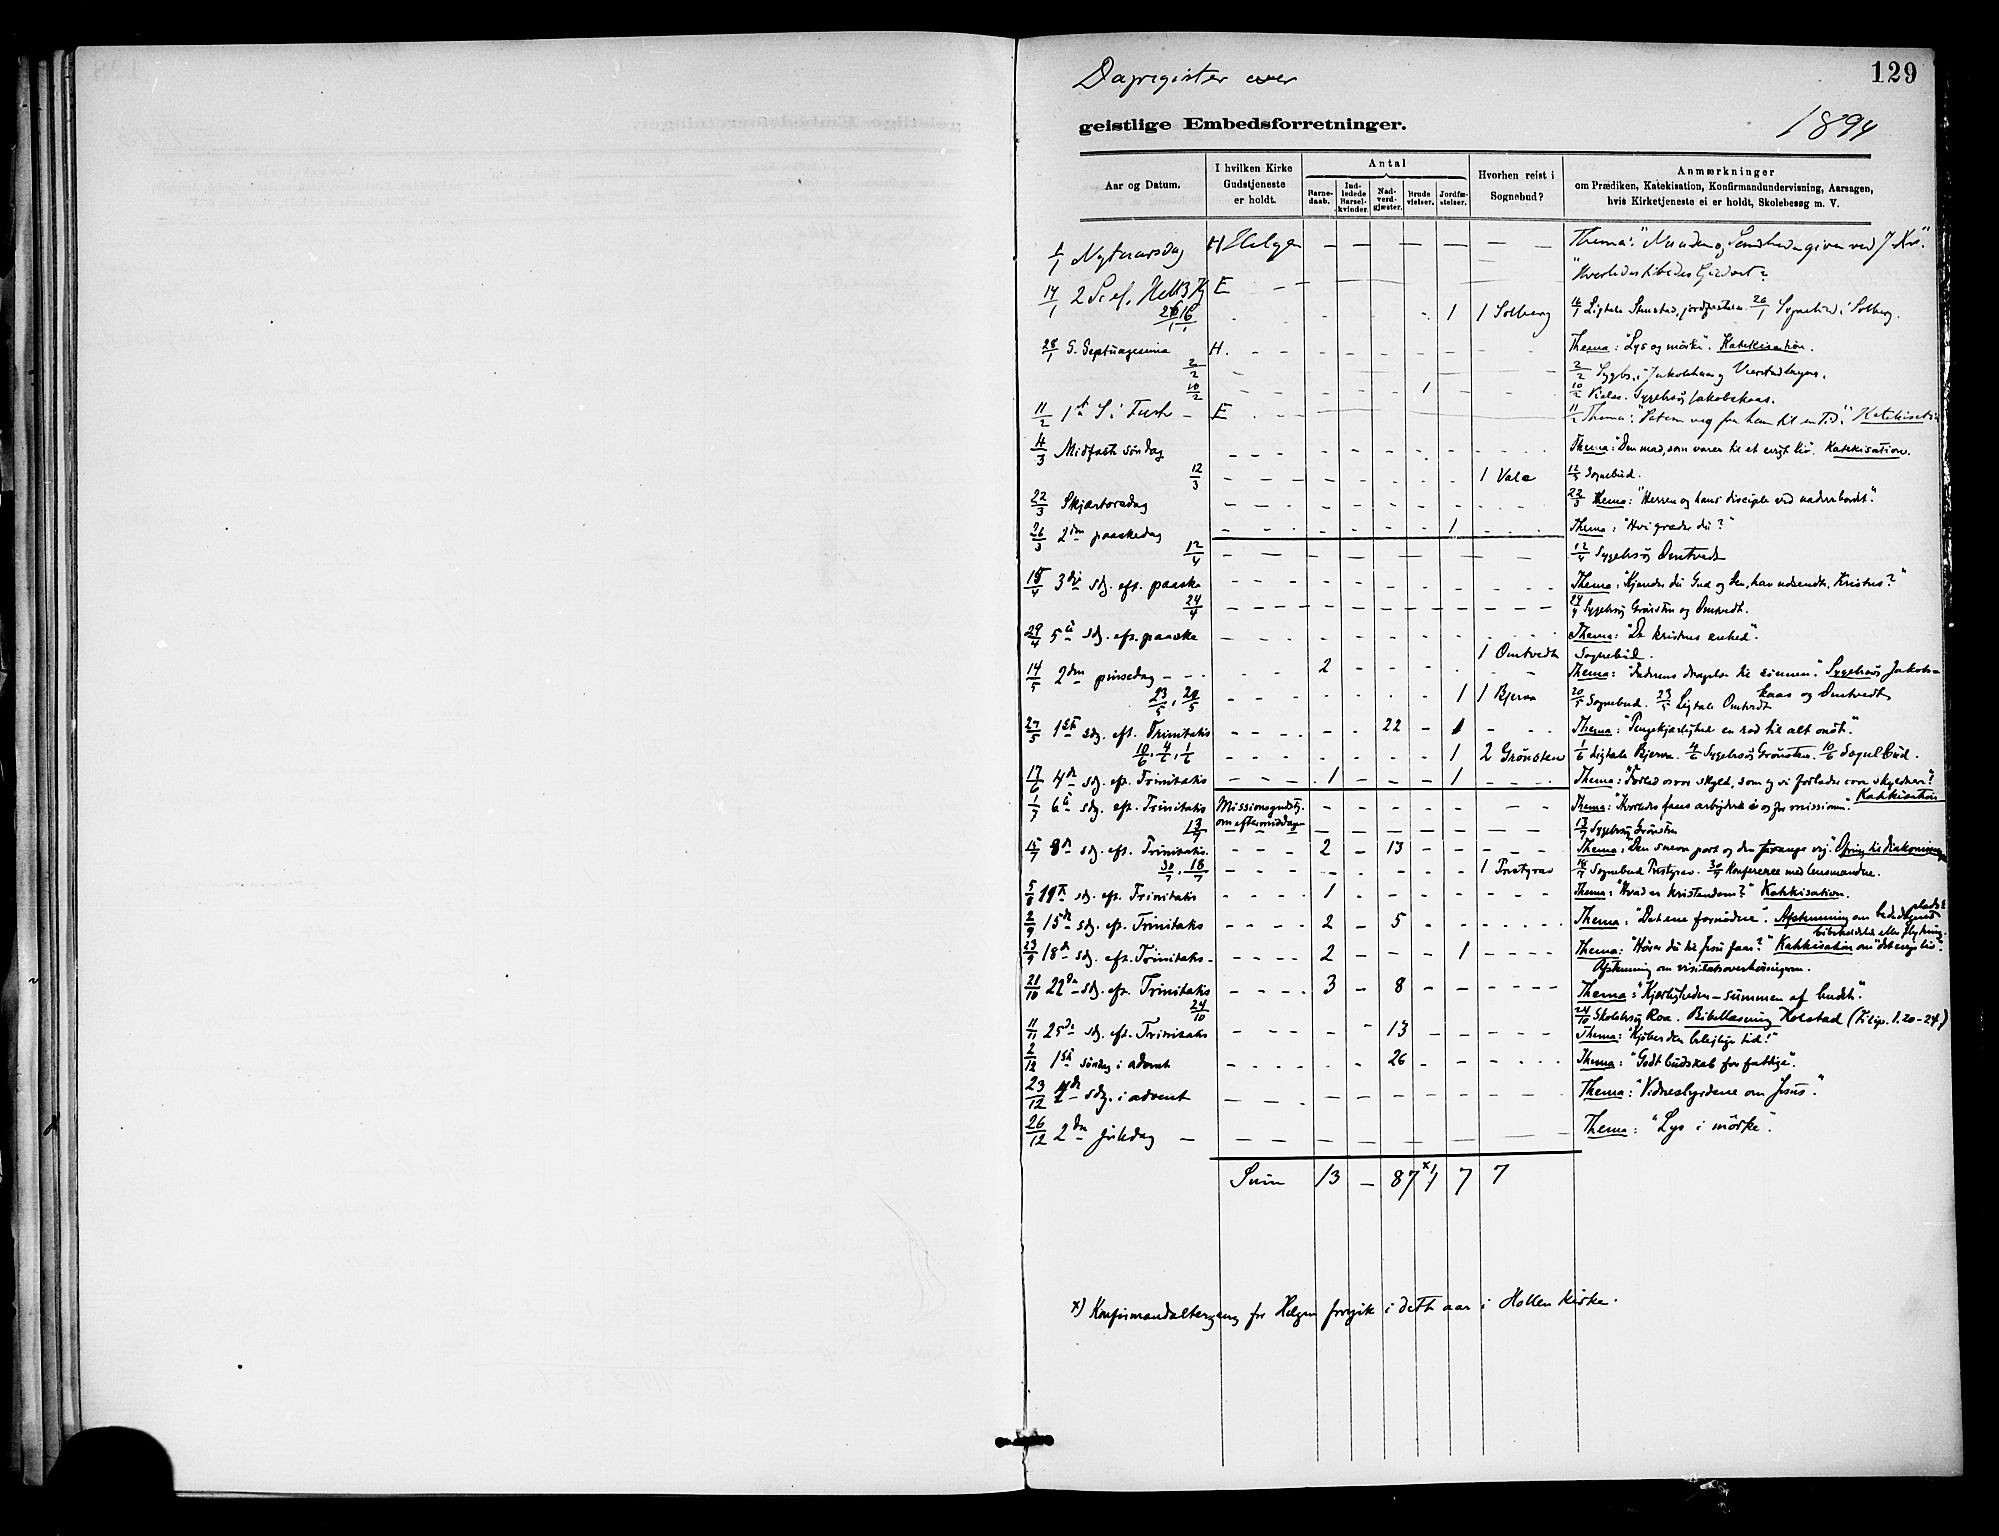 129
Dagregister over
geistlige Embedsforretninger.
1894
Aar og Datum.
I hvilken Kirke Gudstjeneste er holdt.
Antal
Barnedaab.
Indledede Barselkvinder.
Nadverdgjæster.
Brudevielser.
Jordfæstelser.
Hvorhen reist i Sognebud?
Anmærkninger
om Prædiken, Katekisation, Konfirmandundervisning, Aarsagen,
hvis Kirketjeneste ei er holdt, Skolebesøg m. V.
1/1 Nytaarsdag H Helgen — — — — — — Thema: "Naaden og Sandheden given ved J. Kr."
14/1 2 S. ef. Hell 3 Kg E - - — — —
26/1 16/1 1 1 Solberg 16/1 Ligtale Stenstad, jordfæstelse. 26/1 Sognebud i Solberg.
28/1 S. Septuagesima H. - - - Thema: "Lys og mørke". Katekisation.
2/2
10/2 1 10/2 Vielse. Sygebesøg Jakobskaas.
11/2 1ste S i Faste - E - - 11/2 Katekisation
4/3 Midfaste søndag - - - Thema: "Den mad, som varer til et evigt liv. Katekisation.
12/3 - - - 1 Vala 12/3 Sognebud.
22/3 Skjærtorsdag - - - 22/3 Thema: "Herren og hans disciple ved nadverbordet".
26/3 2den paaskedag - - - 1 Thema: "Hvi græder du?"
12/4 — — — 12/4 Sygebesøg Omtvedt
15/4 3die sdg. eft. paaske - - - Thema: "Kjender du Gud og den, han udsendte, Kristus?"
24/4 - - - 24/4 Sygebesøg Grønsten og Omtvedt.
29/4 5te sdg. eft. paaske - - - Thema: "De kristnes enhed".
1 Omtvedt Sognebud.
14/5 2den pinsedag - - - 2 - - - Thema: "Faderens dragelse til sønnen". Sygebesøg Jakobskaas og Omtvedt
23/5, 20/5 - - - 1 1 Bjerva 20/5 Sognebud. 23/5 Ligtale Omtvedt
27/5 1ste sdg. eft. Trinitatis - - - 22 - 1 - - - Thema: "Pengekjærlighed en rod til alt ondt".
10/6, 4/6, 1/6 1 2 Grønsten 1/6 Ligtale Bjerva. 4/6 Sygebesøg Grønsten. 10/6 Sognebud.
17/6 4de sdg. eft. Trinitatis - - - 1 - - - 1 - - - Thema: "Forlad os vor skyld, som og vi forlade vore skyldnere"
Katekisation
1/7 6te sdg. eft. Trinitatis Missionsgudstj. om eftermiddagen - - - Thema: "Hvorledes faar arbejdet i og for missionen".
13/7 — — — 13/7 Sygebesøg Grønsten
15/7 8de sdg. eft. Trinitatis. - - - 2 - 13 - - - Thema: "Den snevre port og den trange vej".
30/7, 18/7 - - - 1 Prestgrav 18/7 Sognebud Prestgrav. 30/7 Konference med lensmanden.
5/8 11te sdg. eft. Trinitatis - - - 1 - - - Thema: "Hvad er kristendom?" Katekisation.
2/9 15de sdg. eft. Trinitatis - - - 2 - 5 - - - Thema: "Det ene fornødne". Afstemning om bededagens
bibeholdelse eller flytning.
23/9 18de sdg. eft. Trinitatis - - - - 2 - - - 1 - - - Thema: "Hører du til Jesu faar?" Katekisation om "det evige liv".
Afstemning om visitatsoverhøringerne.
21/10 22de sdg. eft. Trinitatis - - - 3 - 8 - - - Thema: "Kjærligheden – summen af budet".
24/10 24/10 Skolebesøg Roa. Bibellæsning Holstad (Filip. 1. 20-24)
11/11 25de sdg. eft. Trinitatis - - - 13 - - - Thema: "Kjøber den belejlige tid!"
2/12 1ste søndag i advent - - - 26 - - - Thema: "Godt budskab for fattige".
23/12 4de sdg. i advent — — — Thema: "Vidnesbyrdene om Jesus".
26/12 2den juledag — — — — Thema: "Lys i mørke".
Sum 13 — 87 x) 1 7 7
x) Konfirmandaltergang for Helgen foregik i dette aar i Hollen kirke.